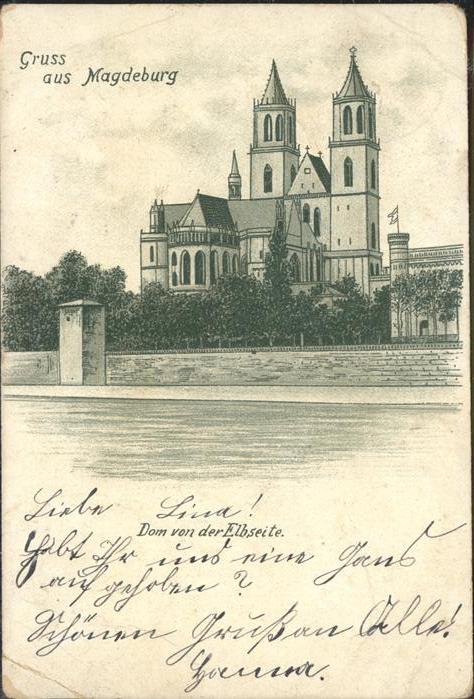 Gruss
aus Magdeburg
Liebe Lina!
Dom von der Elbseite.
Habt Ihr uns eine Gans
aufgehoben?
Schönen Gruß an Alle!
Hanna.